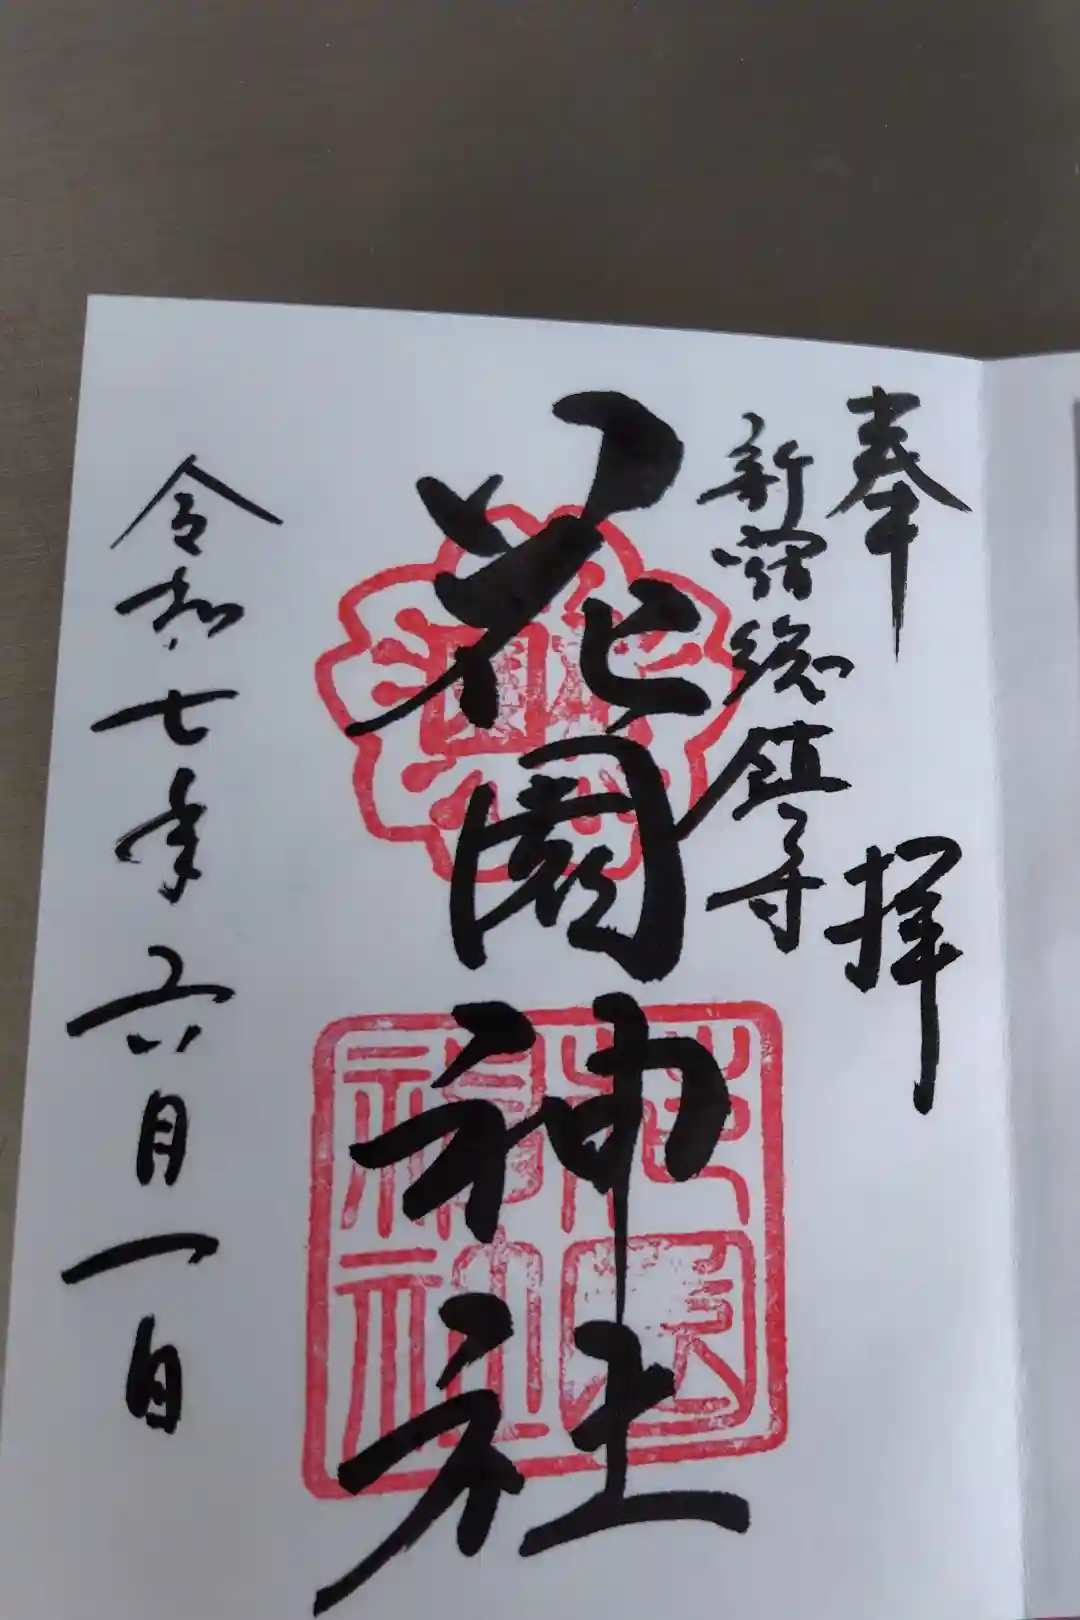 奉拝
新宿総鎮守
花園神社
花園神社
令和七年六月一日